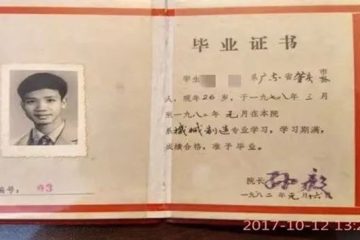 毕业证书
学生 系广东省肇庆市
人，现年26岁，于一九七八年三月
至一九八二年元月在本院
系机械制造专业学习，学习期满，
成绩合格，准予毕业。
院长
一九八二年元月十六
号： 03
2017-10-12 13:2